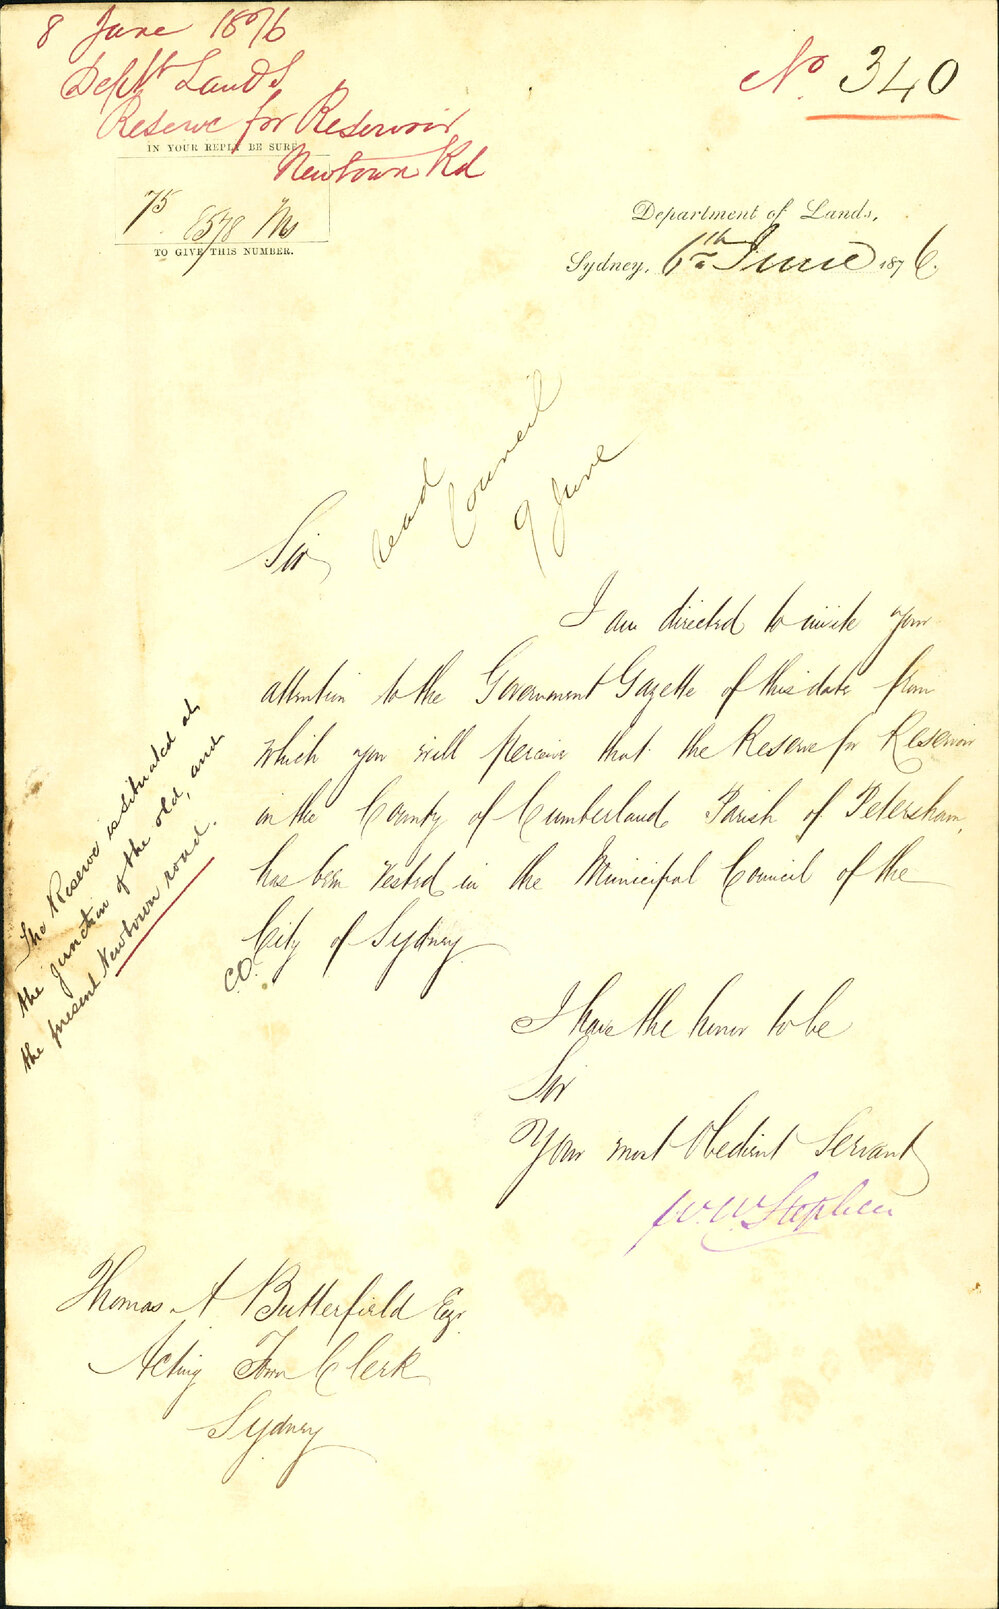 8 June 1876
Dept Lands
Reserve for Reservoir
Newtown Rd
No. 340
IN YOUR REPLY BE SURE
75 8578 Ms
TO GIVE THIS NUMBER.
Department of Lands,
Sydney, 6th June 1876.
read
Council
9 June
Sir,
I am directed to invite your
attention to the Government Gazette of this date from
which you will perceive that the Reserve for Reservoir
in the County of Cumberland, Parish of Petersham,
has been vested in the Municipal Council of the
City of Sydney
C.O.
The Reserve is situated at
the junction of the old, and
the present Newtown road.
I have the honor to be
Sir
Your most Obedient Servant
W.W. Stephen
Thomas A Butterfield Esqr
Acting Town Clerk
Sydney